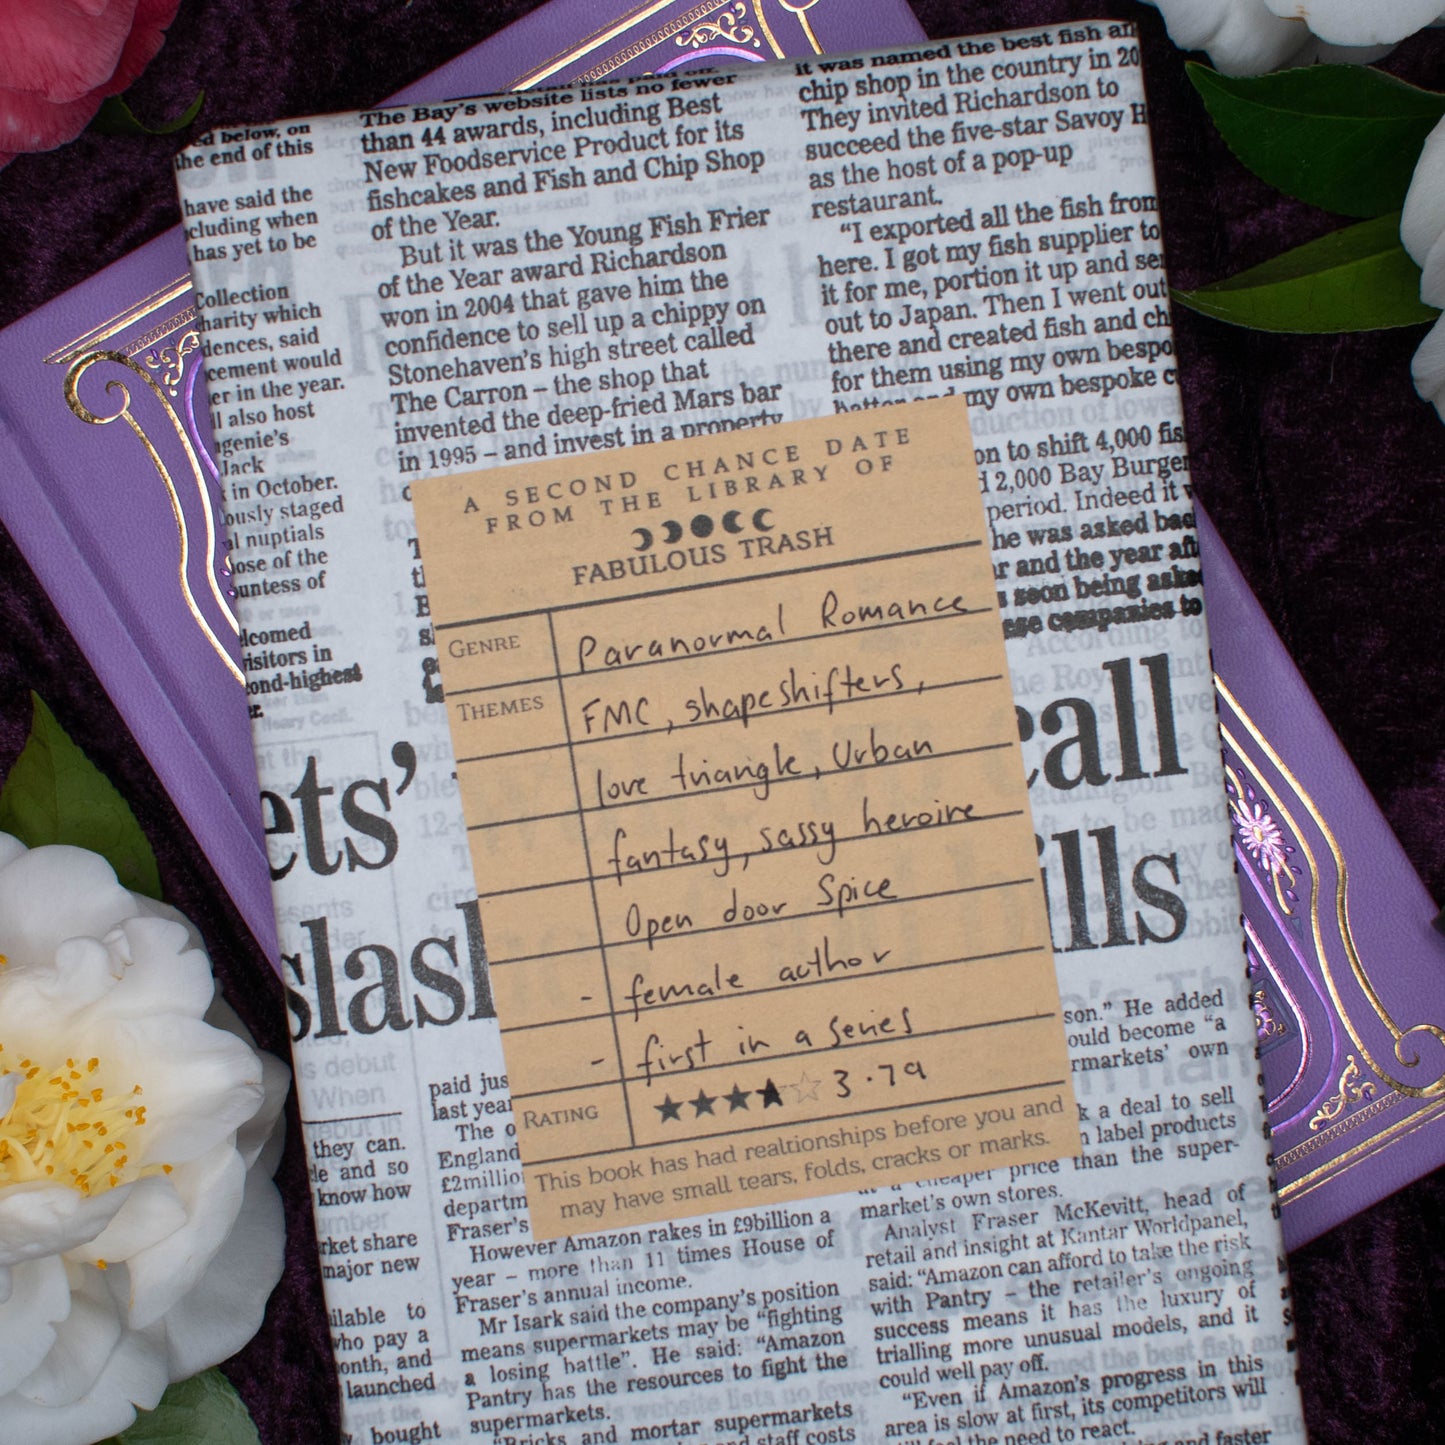 ed below, on
the end of this
have said the
cluding when
has yet to be
Collection
harity which
dences, said
cement would
er in the year.
ll also host
genie's
Jack
in October.
ously staged
al nuptials
ose of the
untess of
elcomed
isitors in
ond-highest
er.
The Bay's website lists no fewer
than 44 awards, including Best
New Foodservice Product for its
fishcakes and Fish and Chip Shop
of the Year.
But it was the Young Fish Frier
of the Year award Richardson
won in 2004 that gave him the
confidence to sell up a chippy on
Stonehaven's high street called
The Carron – the shop that
invented the deep-fried Mars bar
in 1995 – and invest in a property
it was named the best fish an
chip shop in the country in 20
They invited Richardson to
succeed the five-star Savoy H
as the host of a pop-up
restaurant.
“I exported all the fish from
here. I got my fish supplier to
it for me, portion it up and se
out to Japan. Then I went out
there and created fish and ch
for them using my own bespo
my own bespoke c
on to shift 4,000 fis
d 2,000 Bay Burger
period. Indeed it w
he was asked bac
ar and the year aft
s soon being aske
ese companies to
A SECOND CHANCE DATE
FROM THE LIBRARY OF
FABULOUS TRASH
GENRE Paranormal Romance
THEMES FMC, shapeshifters,
love triangle, Urban
fantasy, sassy heroine
Open door Spice
- female author
- first in a series
RATING 3.79
This book has had realtionships before you and
may have small tears, folds, cracks or marks.
ets'
call
slas
ills
they can.
le and so
know how
rket share
major new
ilable to
who pay a
onth, and
launched
bought
paid jus
last year
The o
England
£2millio
departm
Fraser's
However Amazon rakes in £9billion a
year – more than 11 times House of
Fraser's annual income.
Mr Isark said the company's position
means supermarkets may be “fighting
a losing battle”. He said: “Amazon
Pantry has the resources to fight the
supermarkets.
“Bricks and mortar supermarkets
and staff costs
son.” He added
ould become “a
rmarkets' own
k a deal to sell
n label products
price than the super-
market's own stores.
Analyst Fraser McKevitt, head of
retail and insight at Kantar Worldpanel,
said: “Amazon can afford to take the risk
with Pantry – the retailer's ongoing
success means it has the luxury of
trialling more unusual models, and it
could well pay off.
“Even if Amazon's progress in this
area is slow at first, its competitors will
feel the need to react.
and faster